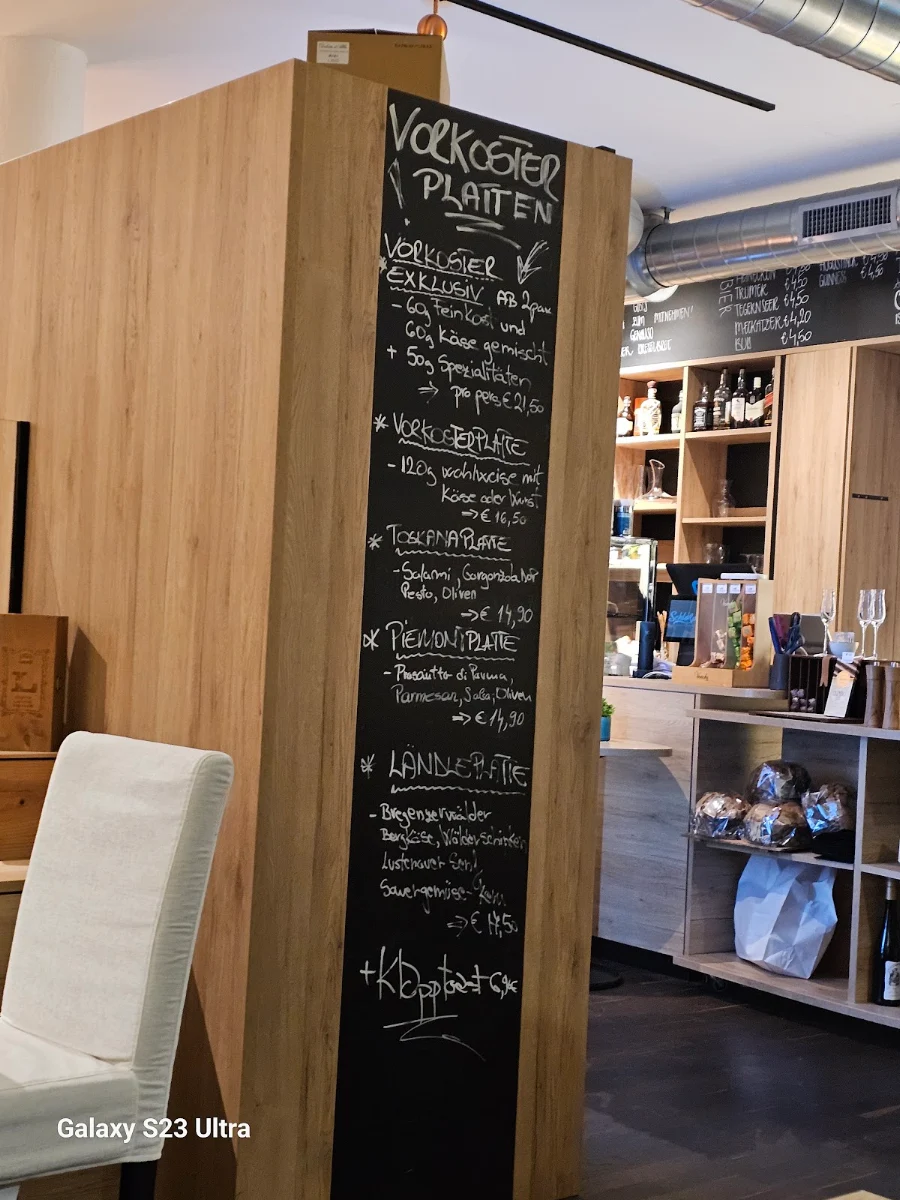 VORKOSTER
PLATTEN
!
VORKOSTER
* EXKLUSIV AB 2
- 60g Feinkost und
60g Käse gemischt
+ 50g Spezialitäten
⇒ pro pers € 21,50
* VORKOSTERPLATTE
- 120g wahlweise mit
Käse oder Wurst
⇒ € 16,50
* TOSKANAPLATTE
- Salami, Gorgonzola
Pesto, Oliven
⇒ € 14,90
* PIEMONTPLATTE
- Prosciutto di Parma,
Parmesan, Oliven
⇒ € 14,90
* LÄNDLEPLATTE
- Bregenzerwälder
Bergkäse, Wälderschinken
Lustenauer Senf
Sauergemüse
⇒ € 17,50
ZUM MITNEHMEN!
BIER
TRUMER € 4,50
TEGERNSEER € 4,50
MECKATZER € 4,20
€ 4,50
AUGUSTINER € 4,50
GUINNESS € 4,50
Galaxy S23 Ultra